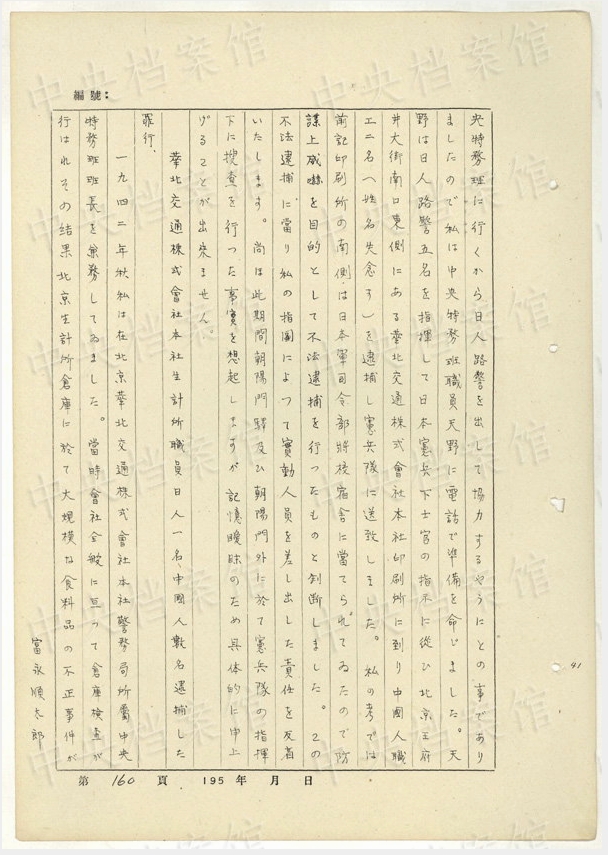 編號：
央特務班に行くから日人路警を出して協力するやうにとの事であり
ましたので私は中央特務班職員天野に電話で準備を命じました。天
野は日人路警五名を指揮して日本憲兵下士官の指示に從ひ北京王府
井大街南口東側にある華北交通株式會社本社印刷所に到り中國人職
工二名（姓名失念す）を逮捕し憲兵隊に送致しました。私の考では
前記印刷所の南側は日本軍司令部將校宿舍に當てられてゐたので防
諜上威嚇を目的として不法逮捕を行つたものと判断しました。この
不法逮捕に當り私の指圖によつて實動人員を差し出した責任を反省
いたします。尚ほ此期間朝陽門驛及び朝陽門外に於て憲兵隊の指揮
下に搜查を行つた事實を想起しますが記憶曖昧のため具体的に申上
げることが出來ません。
華北交通株式會社本社生計所職員日人一名、中國人數名逮捕した
罪行.
一九四二年秋私は在北京華北交通株式會社本社警務局所屬中央
特務班班長を兼務してゐました。當時會社全般に亘つて倉庫檢查が
行はれその結果北京生計所倉庫に於て大規模な食料品の不正事件が
富永順太郎
第 160 頁 195 年 月 日
41
中央档案馆